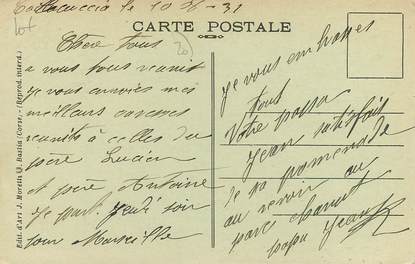 le 10 31
CARTE POSTALE
20
Chère tous
a vous tous reunit
Je vous envoies mes
meilleurs
reunits à celles du
père Lucien
et père Antoine
Je part Jeudi soir
pour Marseille
Je vous embrasses
tous
Votre papa
Jean satisfait
de sa promenade
au revoir au
papa Jean
Edit. d'Art J. Moretti, Bastia (Corse). - (Reprod. interd.)